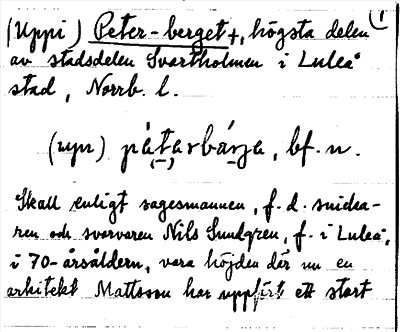 (Uppi) Peter-berget +, högsta delen 1
av stadsdelen Svartholmen i Luleå
stad, Norrb. l.
(upi) pàtarbárja, bf. n.
Skall enligt sagesmannen, f. d. snicka-
ren och svarvaren Nils Sundgren, f. i Luleå,
i 70-årsåldern, vara höjden där nu en
arkitekt Mattsson har uppfört ett stort